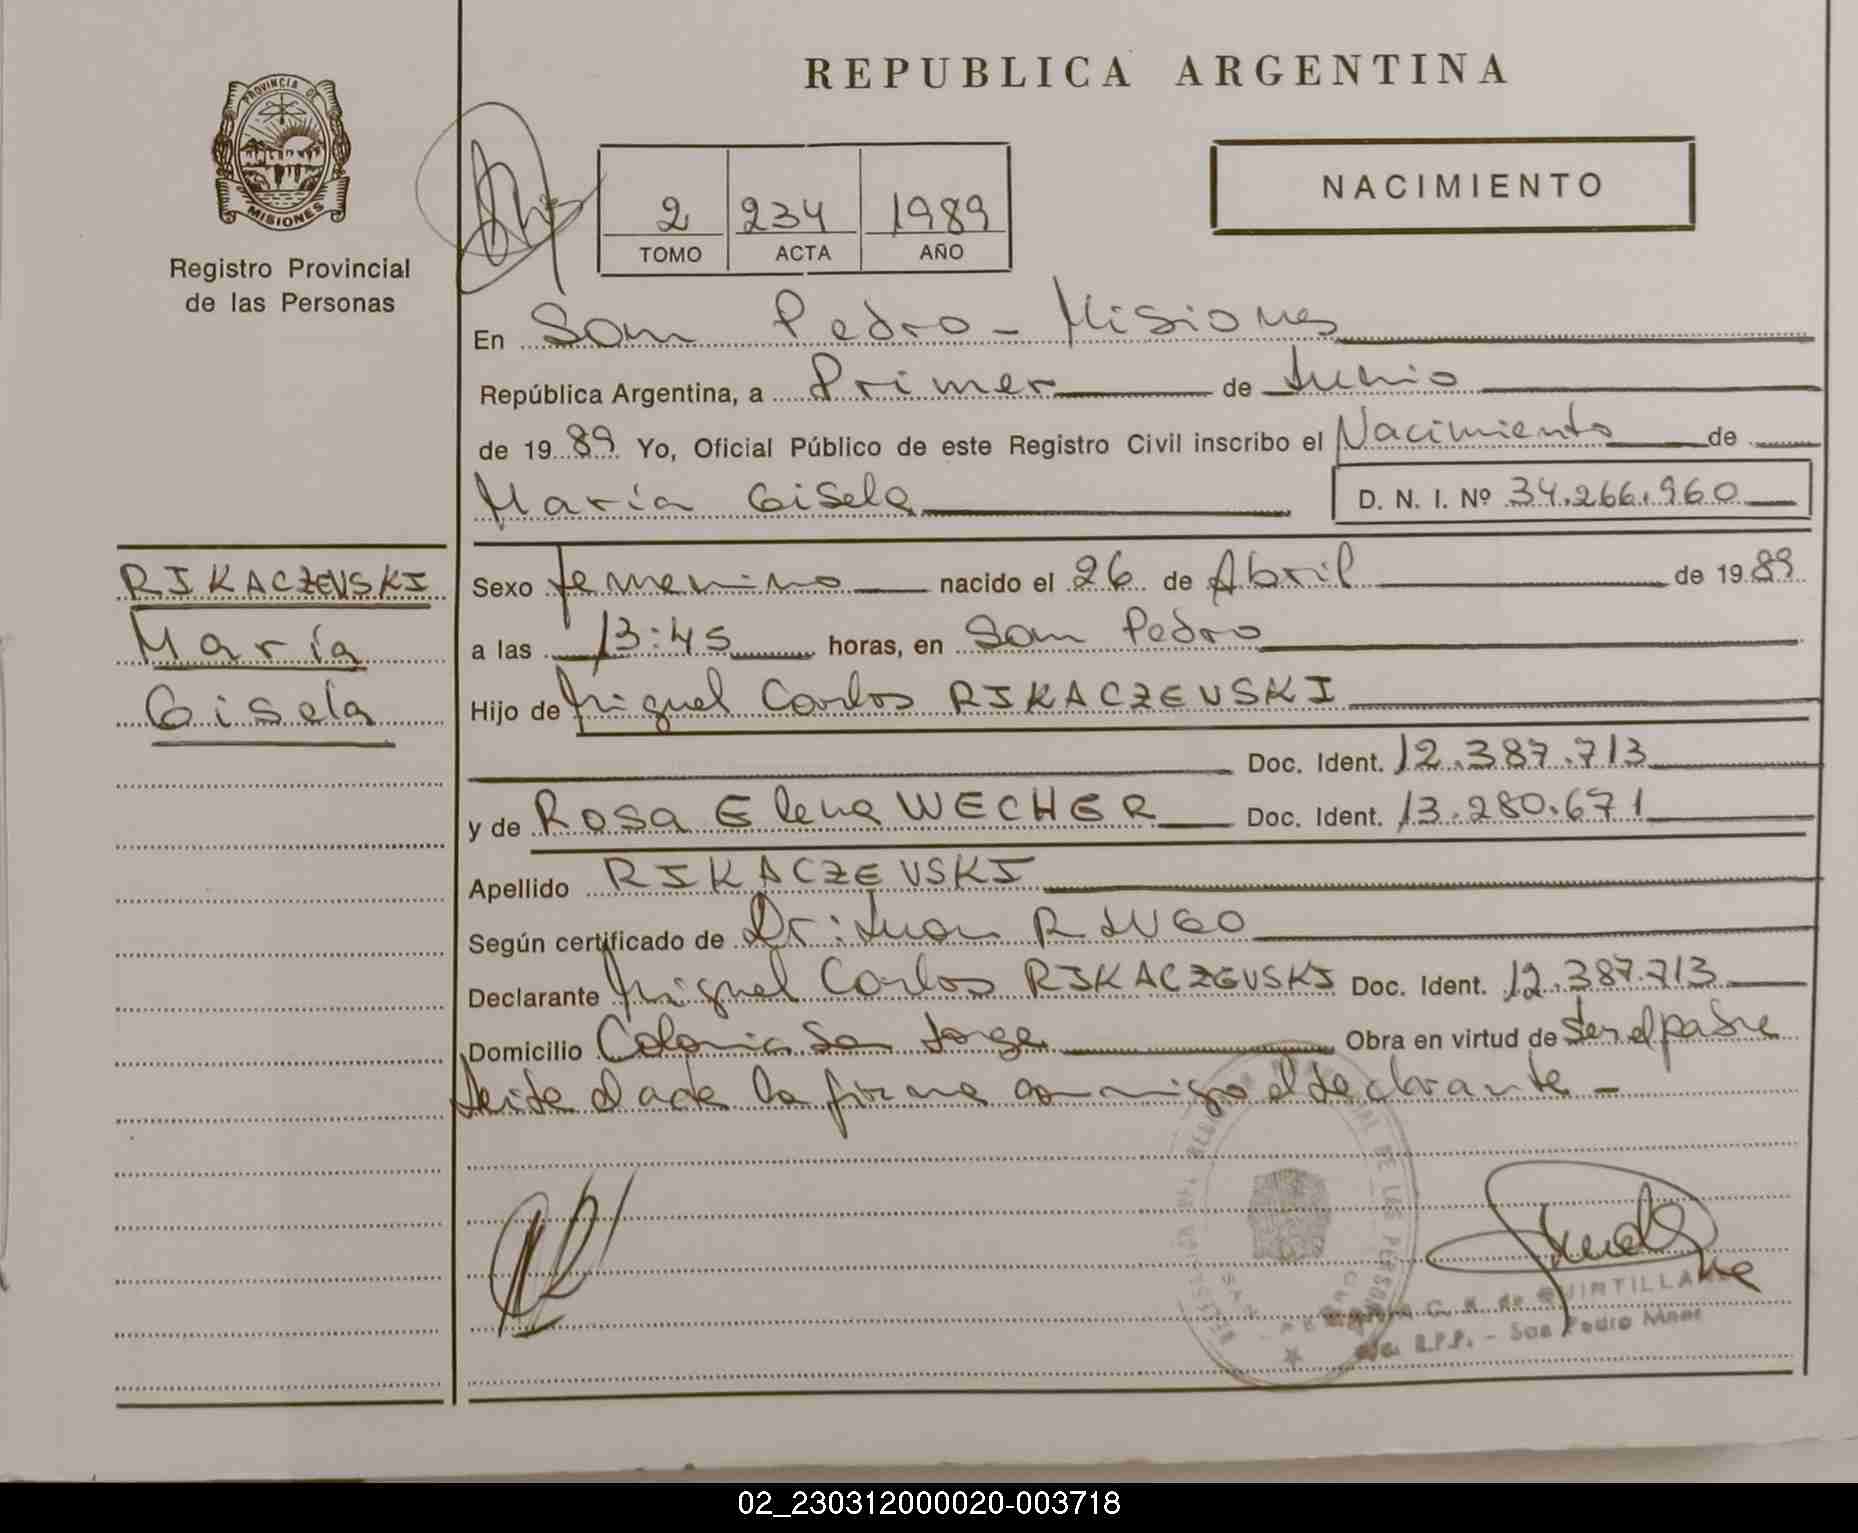 PROVINCIA DE
MISIONES
Registro Provincial
de las Personas
REPUBLICA ARGENTINA
NACIMIENTO
2 234 1989
TOMO ACTA AÑO
En San Pedro - Misiones
República Argentina, a Primer de Junio
de 1989 Yo, Oficial Público de este Registro Civil inscribo el Nacimiento de
María Gisela D. N. I. Nº 34.266.960
RIKACZEVSKI
María
Gisela
Sexo femenino nacido el 26 de Abril de 1989
a las 13:45 horas, en San Pedro
Hijo de Miguel Carlos RIKACZEVSKI
Doc. Ident. 12.387.713
y de Rosa Elena WECHER Doc. Ident. 13.280.671
Apellido RIKACZEVSKI
Según certificado de Dr: Juan
Declarante Miguel Carlos RIKACZEVSKI Doc. Ident. 12.387.713
Domicilio Colonia San Jorge Obra en virtud de ser el padre
Leída el acta la firma conmigo el declarante -
DE LAS PERSONAS
de QUINTILLA
R.P.P. - San Pedro Mnes
02_230312000020-003718